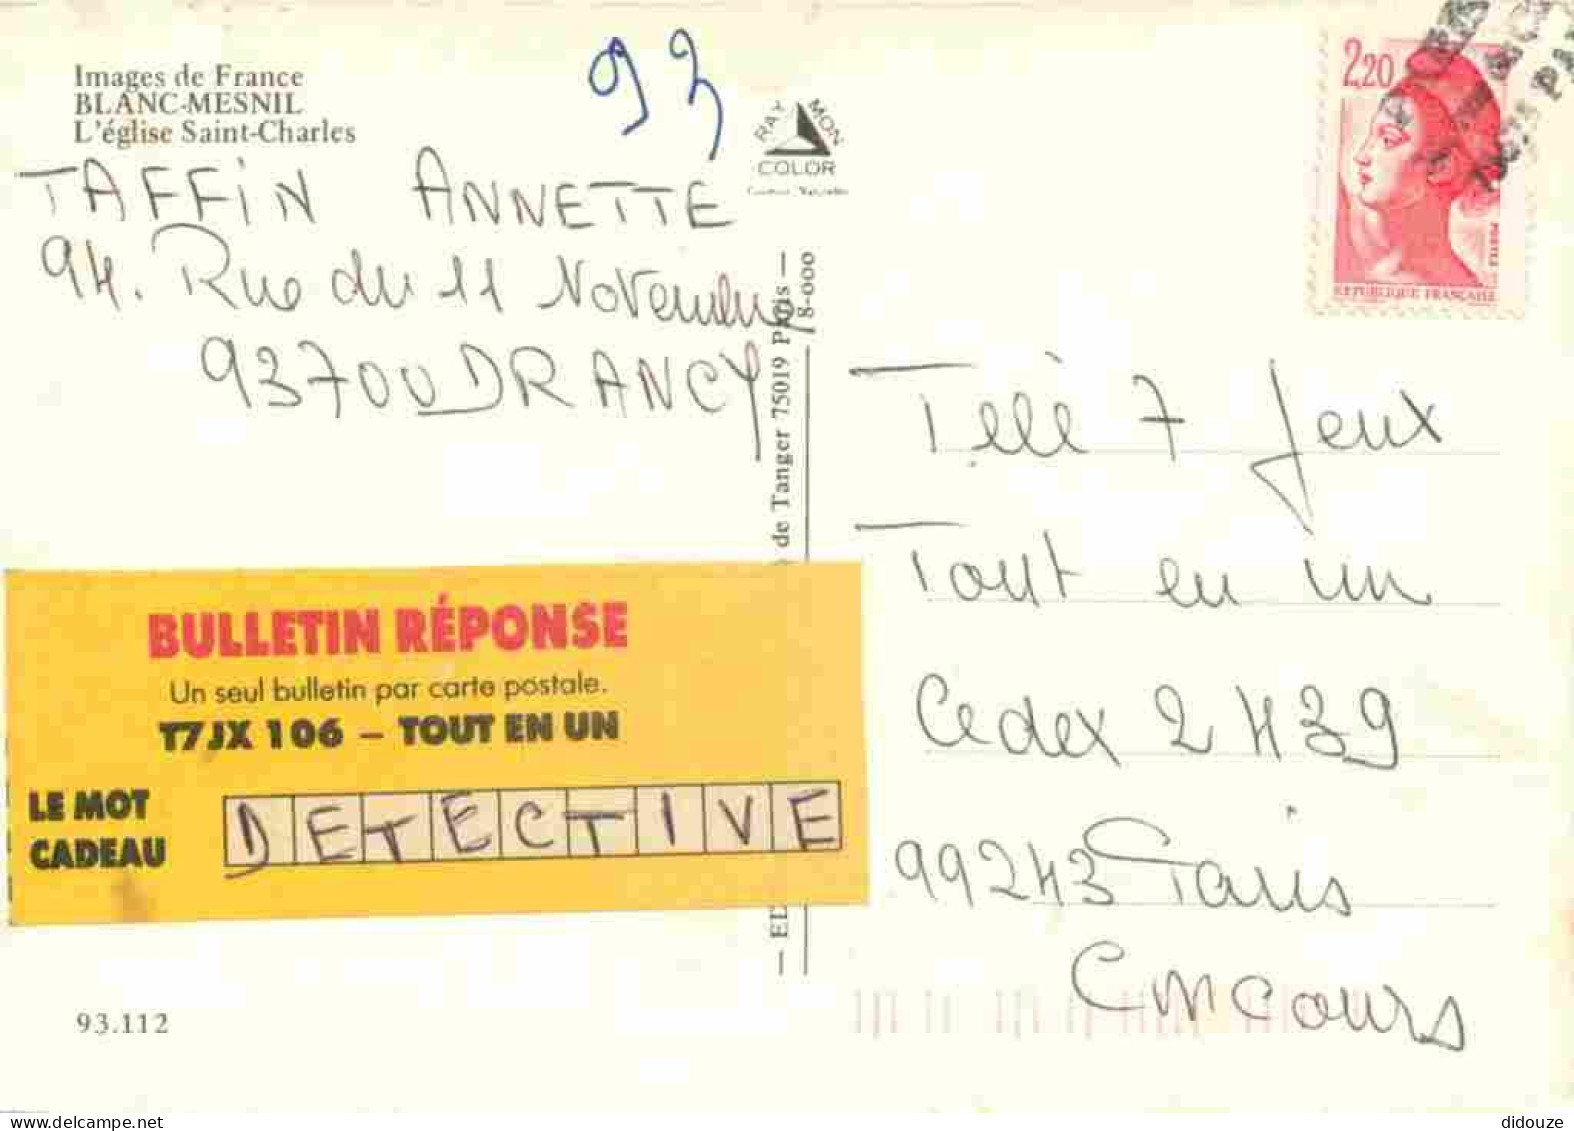 Images de France
BLANC-MESNIL
L'église Saint-Charles
93
RAYMON
COLOR
2,20
POSTES
REPUBLIQUE FRANÇAISE
TAFFIN ANNETTE
94. Rue du 11 Novembre
93700 DRANCY
de Tanger 75019 Paris —
8-000
Télé 7 Jeux
Tout en un
Cedex 2439
99243 Paris
Concours
BULLETIN RÉPONSE
Un seul bulletin par carte postale.
T7JX 106 – TOUT EN UN
LE MOT
CADEAU
DETECTIVE
93.112
didouze